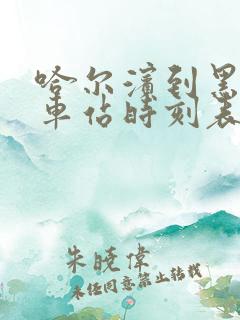 哈尔滨到黑
车佔时刻表
朱晓伟
未经同意禁止转载